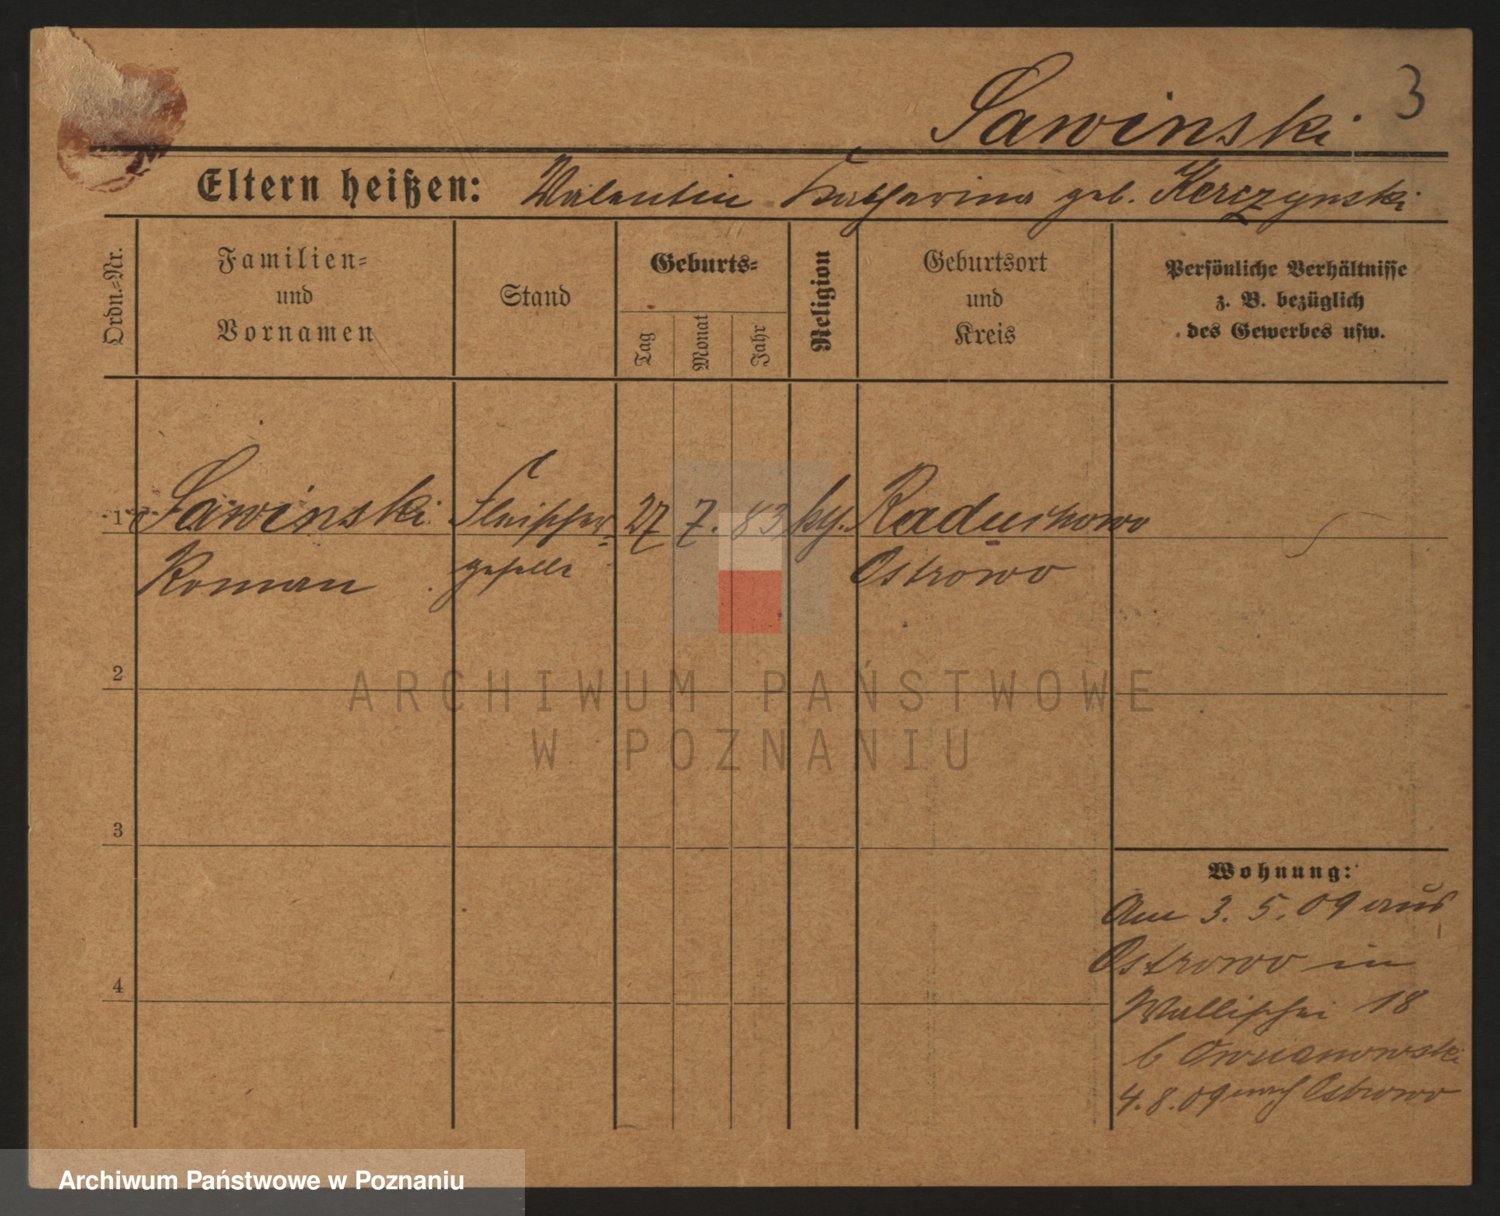 3
Sawinski
Eltern heißen: Valentin Katharina geb. Kerczynski
Ordn.-Nr.
Familien-
und
Vornamen
Stand
Geburts-
Tag
Monat
Jahr
Religion
Geburtsort
und
Kreis
Persönliche Verhältnisse
z. B. bezüglich
des Gewerbes usw.
1 Sawinski Fleischer- 27 7. 83 kg.
Roman geselle Ostrowo
2
ARCHIWUM PAŃSTWOWE
W POZNANIU
3
Wohnung:
Am 3. 5. 09 aus
Ostrowo in
4
Wallischei 18
b
4. 8. 09 nach Ostrowo
Archiwum Państwowe w Poznaniu